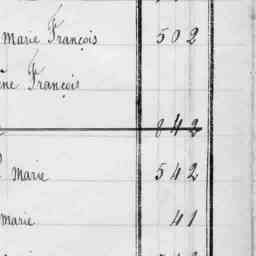 marie François 502
ne François
842
marie 542
marie 41